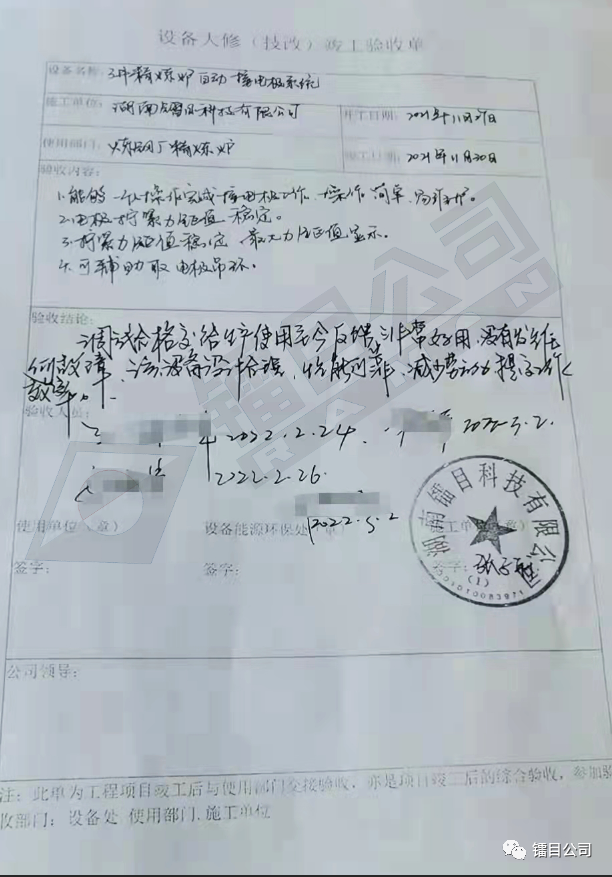 设备大修（技改）竣工验收单
设备名称：3#精炼炉自动接电极系统
施工单位：湖南镭目科技有限公司
开工日期：2021年11月27日
使用部门：炼钢厂精炼炉
竣工日期：2021年11月30日
验收内容：
1.能够一次操作完成接电极工作，操作简单，易维护。
2.电极拧紧力矩值稳定。
3.拧紧力矩值稳定，最大力矩值显示。
4.可辅助取电极吊环。
验收结论：
调试合格交给生产使用至今反馈非常好用，没有发生任
何故障，该设备设计合理，性能可靠，减少劳动提高工作
效率。
验收人员：
2022.2.24.
2022.3.2.
2022.2.26.
2022.3.2
使用单位（章）
设备能源环保处（章）
施工单位（章）
签字：
签字：
签字：
湖南镭目科技有限公司
(1)
公司领导：
注：此单为工程项目竣工后与使用部门交接验收，亦是项目竣工后的综合验收，参加验
收部门：设备处.使用部门.施工单位
镭目公司
RAMON
镭目公司